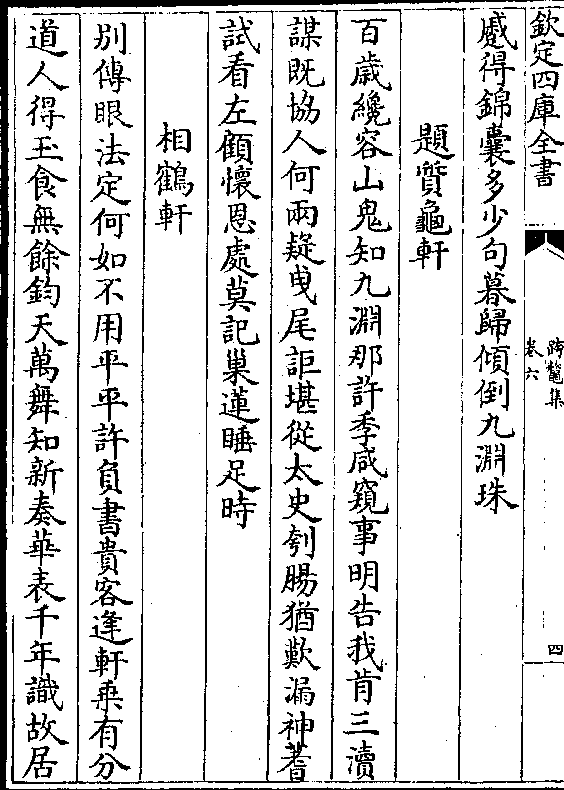 欽定四庫全書
跨鼇集
卷六
四
感得錦囊多少句暮歸傾倒九淵珠
題質龜軒
百歲纔容山鬼知九淵那許季咸窺事明告我肯三瀆
謀既協人何兩疑曳尾詎堪從太史刳腸猶歎漏神蓍
試看左顧懷恩處莫記巢蓮睡足時
相鶴軒
別傳眼法定何如不用平平許負書貴客逢軒乘有分
道人得玉食無餘鈞天萬舞知新奏華表千年識故居